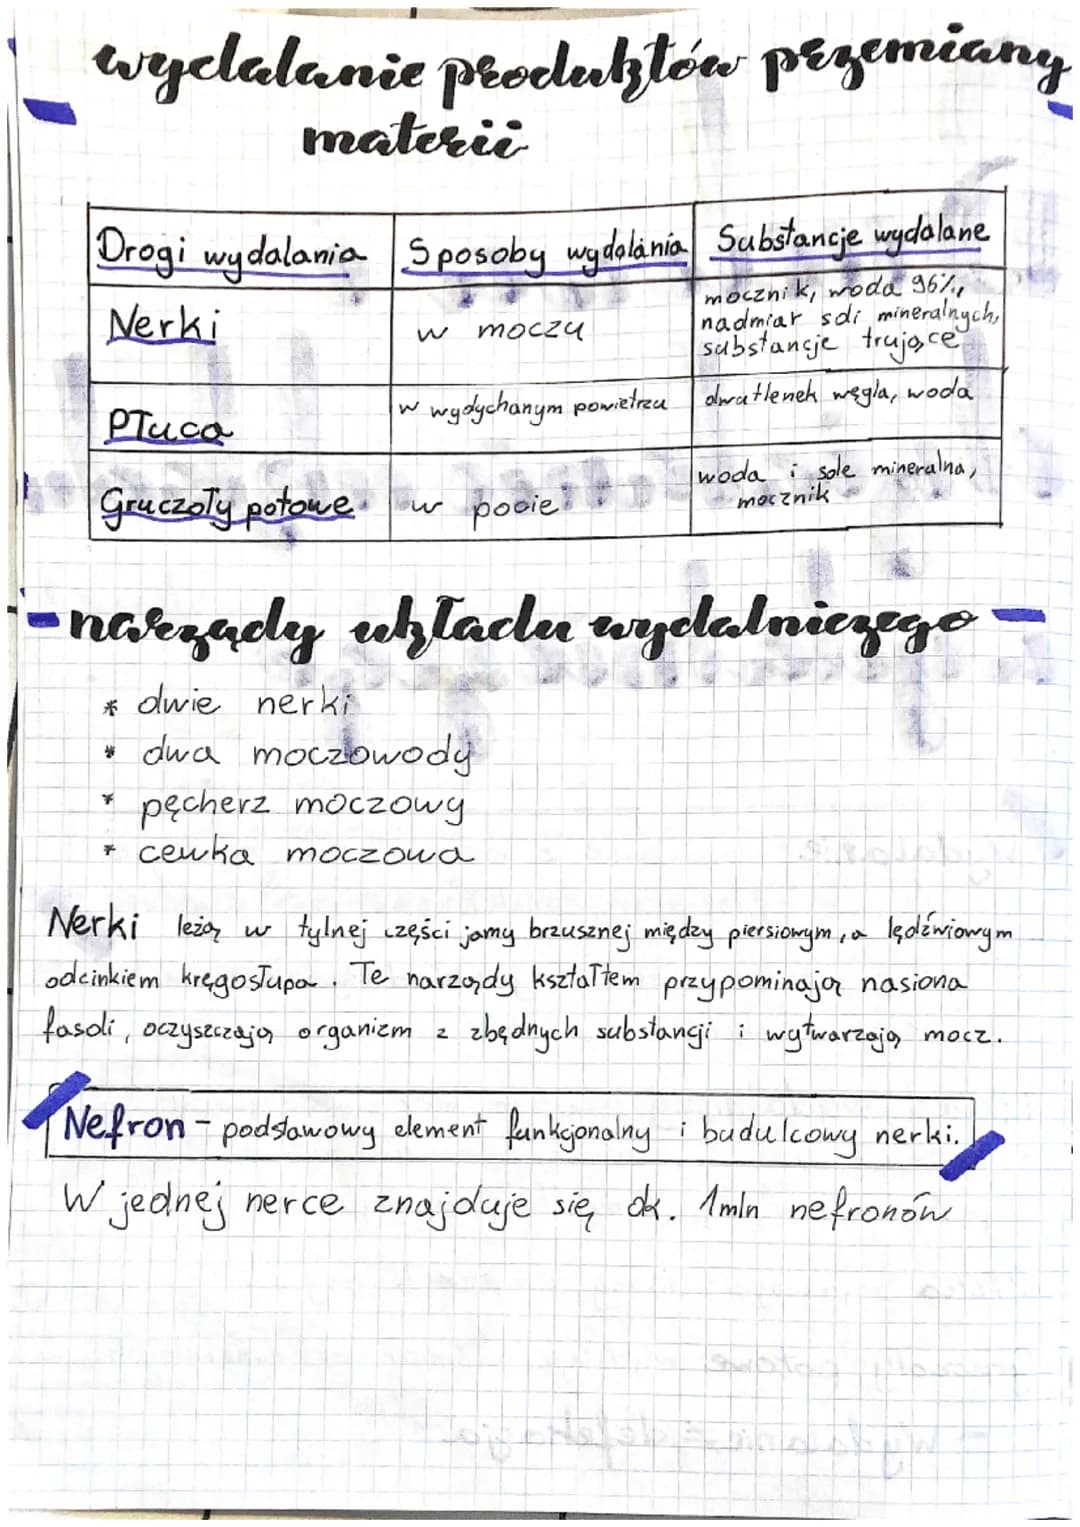 wydalanie produktów przemiany
materii
Drogi wydalania Sposoby wydalania Substancje wydalane
Nerki w moczu mocznik, woda 96%,
nadmiar soli mineralnych,
substancje trujące
Płuca w wydychanym powietrzu dwutlenek węgla, woda
Gruczoły potowe w pocie woda i sole mineralna,
mocznik
narządy układu wydalniczego
* dwie nerki
* dwa moczowody
* pęcherz moczowy
* cewka moczowa
Nerki leżą w tylnej części jamy brzusznej między piersiowym, a lędźwiowym
odcinkiem kręgosłupa. Te narządy kształtem przypominają nasiona
fasoli, oczyszczają organizm z zbędnych substancji i wytwarzają mocz.
Nefron - podstawowy element funkcjonalny i budulcowy nerki.
W jednej nerce znajduje się ok. 1mln nefronów